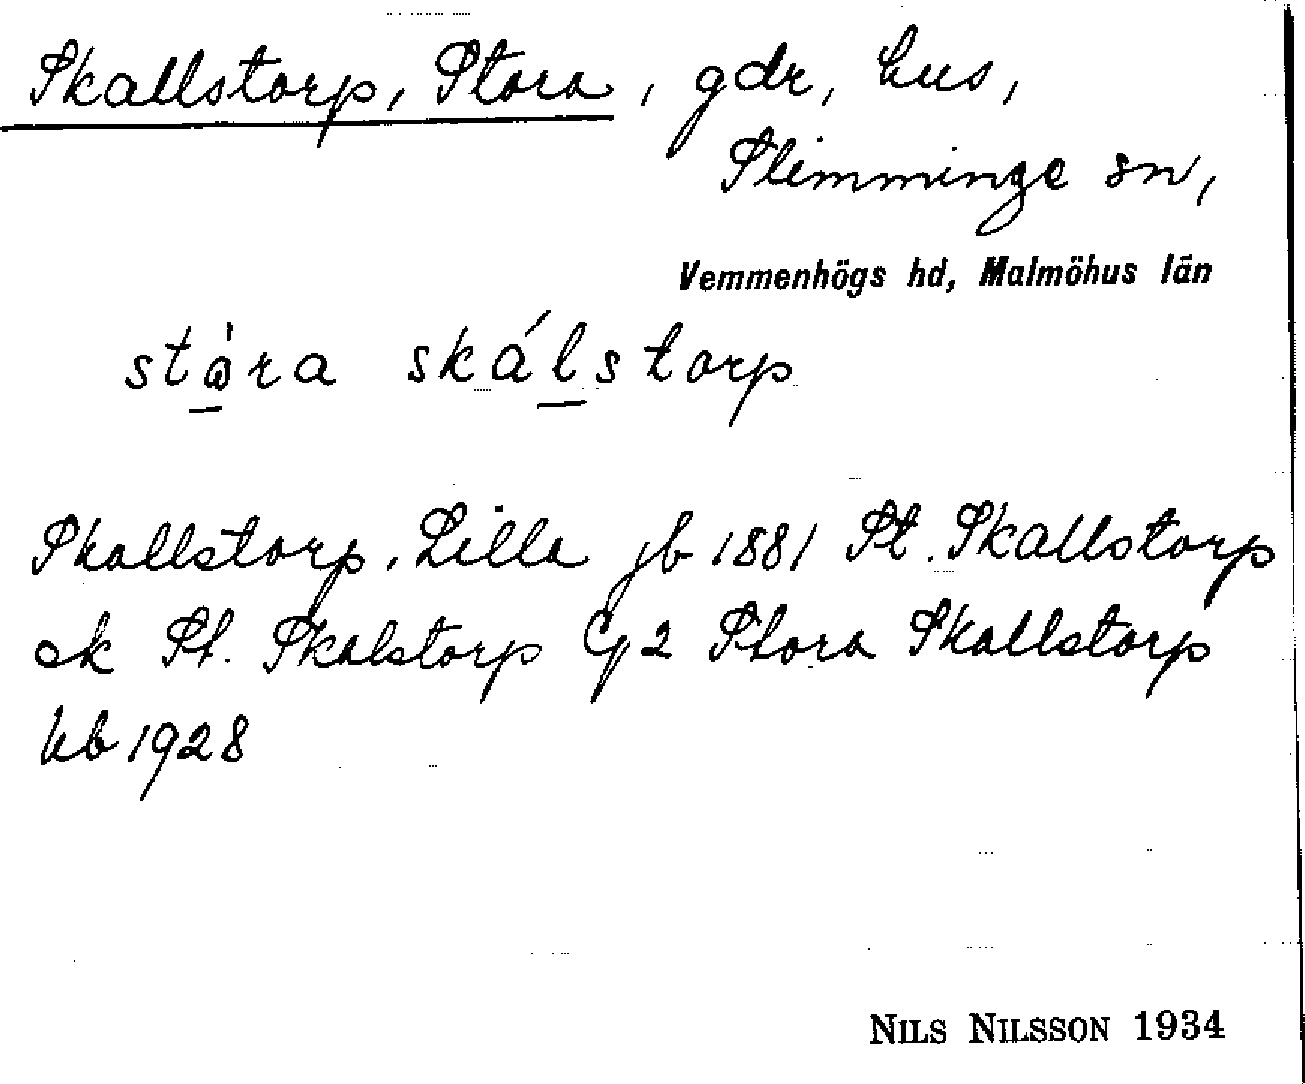 Skallstorp, Stora, gdr, hus,
Slimminge sn,
Vemmenhögs hd, Malmöhus län
stòra skálstorp
Skallstorp, Lilla jb 1881 St. Skallstorp
ek St. Skalstorp G2 Stora Skallstorp
kb 1928
NILS NILSSON 1934